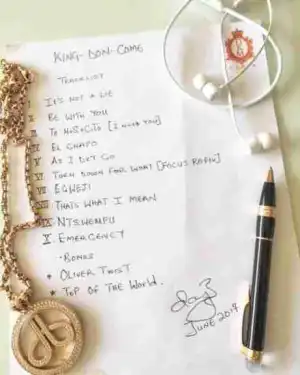 KING-DON-COME
TRACKLIST
I IT'S NOT A LIE
II BE WITH YOU
III TE [I NEED YOU]
IV EL CHAPO
V AS I DEY GO
VI TURN DOWN FOR WHAT [FOCUS RAMON]
VII EGWEJI
VIII THATS WHAT I MEAN
IX NTSWEMPU
X EMERGENCY
- BONUS
* OLIVER TWIST
* TOP OF THE WORLD.
JUNE 2017